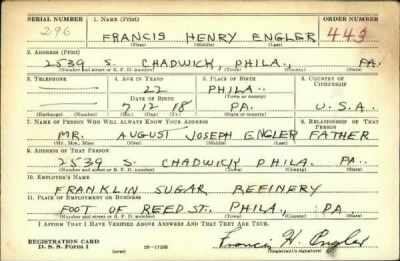 SERIAL NUMBER 1. NAME (Print) ORDER NUMBER
296 FRANCIS HENRY ENGLER 443
(First) (Middle) (Last)
2. ADDRESS (Print)
2539 S. CHADWICK, PHILA., PA.
(Number and street or R. F. D. number) (Town) (County) (State)
3. TELEPHONE 4. AGE IN YEARS 5. PLACE OF BIRTH 6. COUNTRY OF CITIZENSHIP
22 PHILA.
DATE OF BIRTH (Town or county)
7 12 18 PA. U.S.A.
(Exchange) (Number) (Mo.) (Day) (Yr.) (State or country)
7. NAME OF PERSON WHO WILL ALWAYS KNOW YOUR ADDRESS 8. RELATIONSHIP OF THAT PERSON
MR. AUGUST JOSEPH ENGLER FATHER
(Mr., Mrs., Miss) (First) (Middle) (Last)
9. ADDRESS OF THAT PERSON
2539 S. CHADWICK PHILA. PA.
(Number and street or R. F. D. number) (Town) (County) (State)
10. EMPLOYER'S NAME
FRANKLIN SUGAR REFINERY
11. PLACE OF EMPLOYMENT OR BUSINESS
FOOT OF REED ST., PHILA., PA
(Number and street or R. F. D. number) (Town) (County) (State)
I AFFIRM THAT I HAVE VERIFIED ABOVE ANSWERS AND THAT THEY ARE TRUE.
REGISTRATION CARD
D. S. S. Form 1 (over) 16-17105 Francis H. Engler
(Registrant's signature)